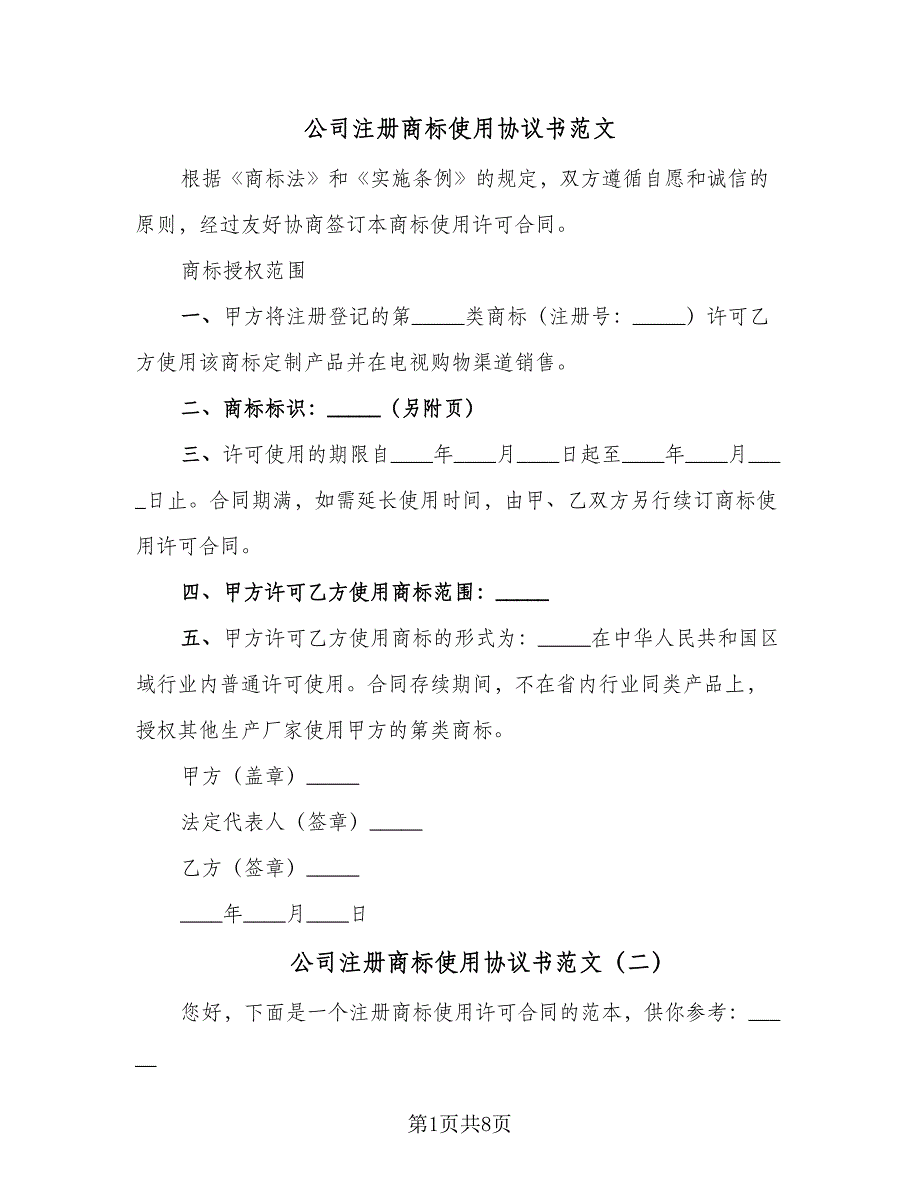 公司注册商标使用协议书范文
根据《商标法》和《实施条例》的规定，双方遵循自愿和诚信的
原则，经过友好协商签订本商标使用许可合同。
商标授权范围
一、甲方将注册登记的第_____类商标（注册号：_____）许可乙
方使用该商标定制产品并在电视购物渠道销售。
二、商标标识：_____（另附页）
三、许可使用的期限自____年____月____日起至____年____月___
_日止。合同期满，如需延长使用时间，由甲、乙双方另行续订商标使
用许可合同。
四、甲方许可乙方使用商标范围：_____
五、甲方许可乙方使用商标的形式为：_____在中华人民共和国区
域行业内普通许可使用。合同存续期间，不在省内行业同类产品上，
授权其他生产厂家使用甲方的第类商标。
甲方（盖章）_____
法定代表人（签章）_____
乙方（签章）_____
____年____月____日
公司注册商标使用协议书范文（二）
您好，下面是一个注册商标使用许可合同的范本，供你参考：___
__
第1页共8页